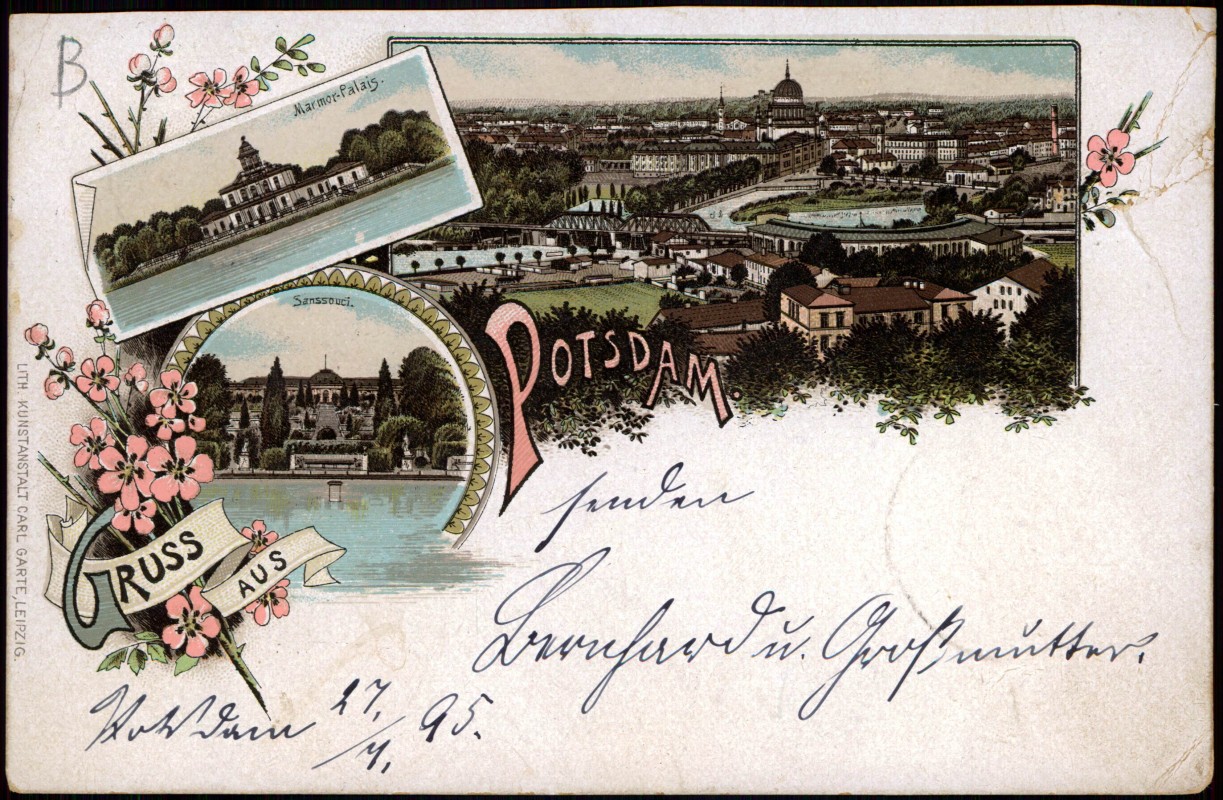 B
Marmor-Palais.
Sanssouci.
POTSDAM.
GRUSS
AUS
senden
Bernhard u. Großmutter.
Potsdam 27./4. 95.
LITH. KUNSTANSTALT CARL GARTE, LEIPZIG.